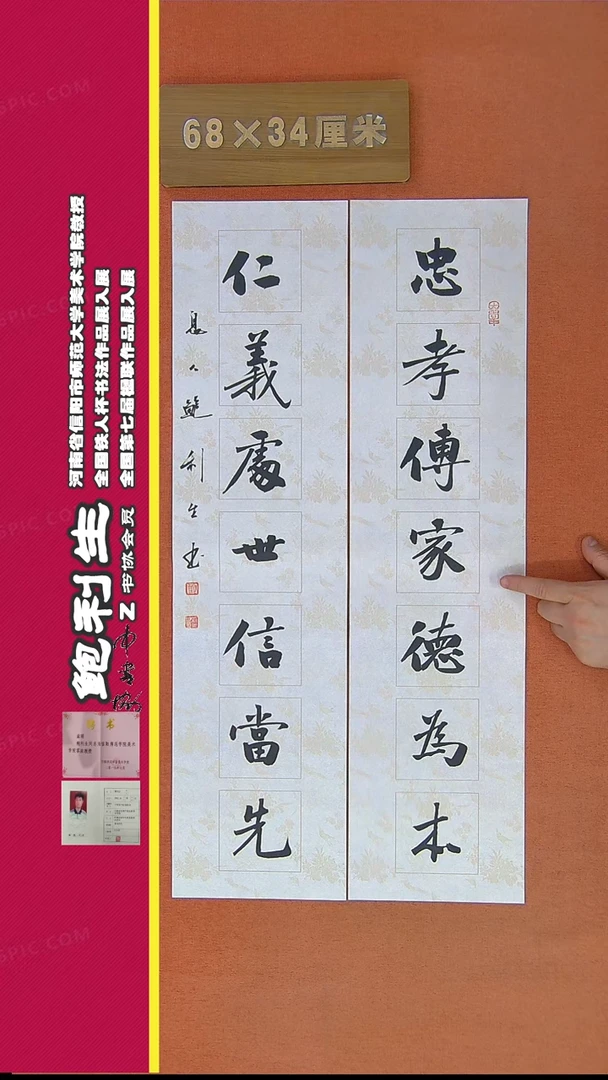 68×34厘米
忠孝傳家德為本
仁義處世信當先
息人鮑利生書
河南省信阳市师范大学美术学院教授
全国铁人杯书法作品展入展
全国第七届楹联作品展入展
鲍利生
Z书协会员